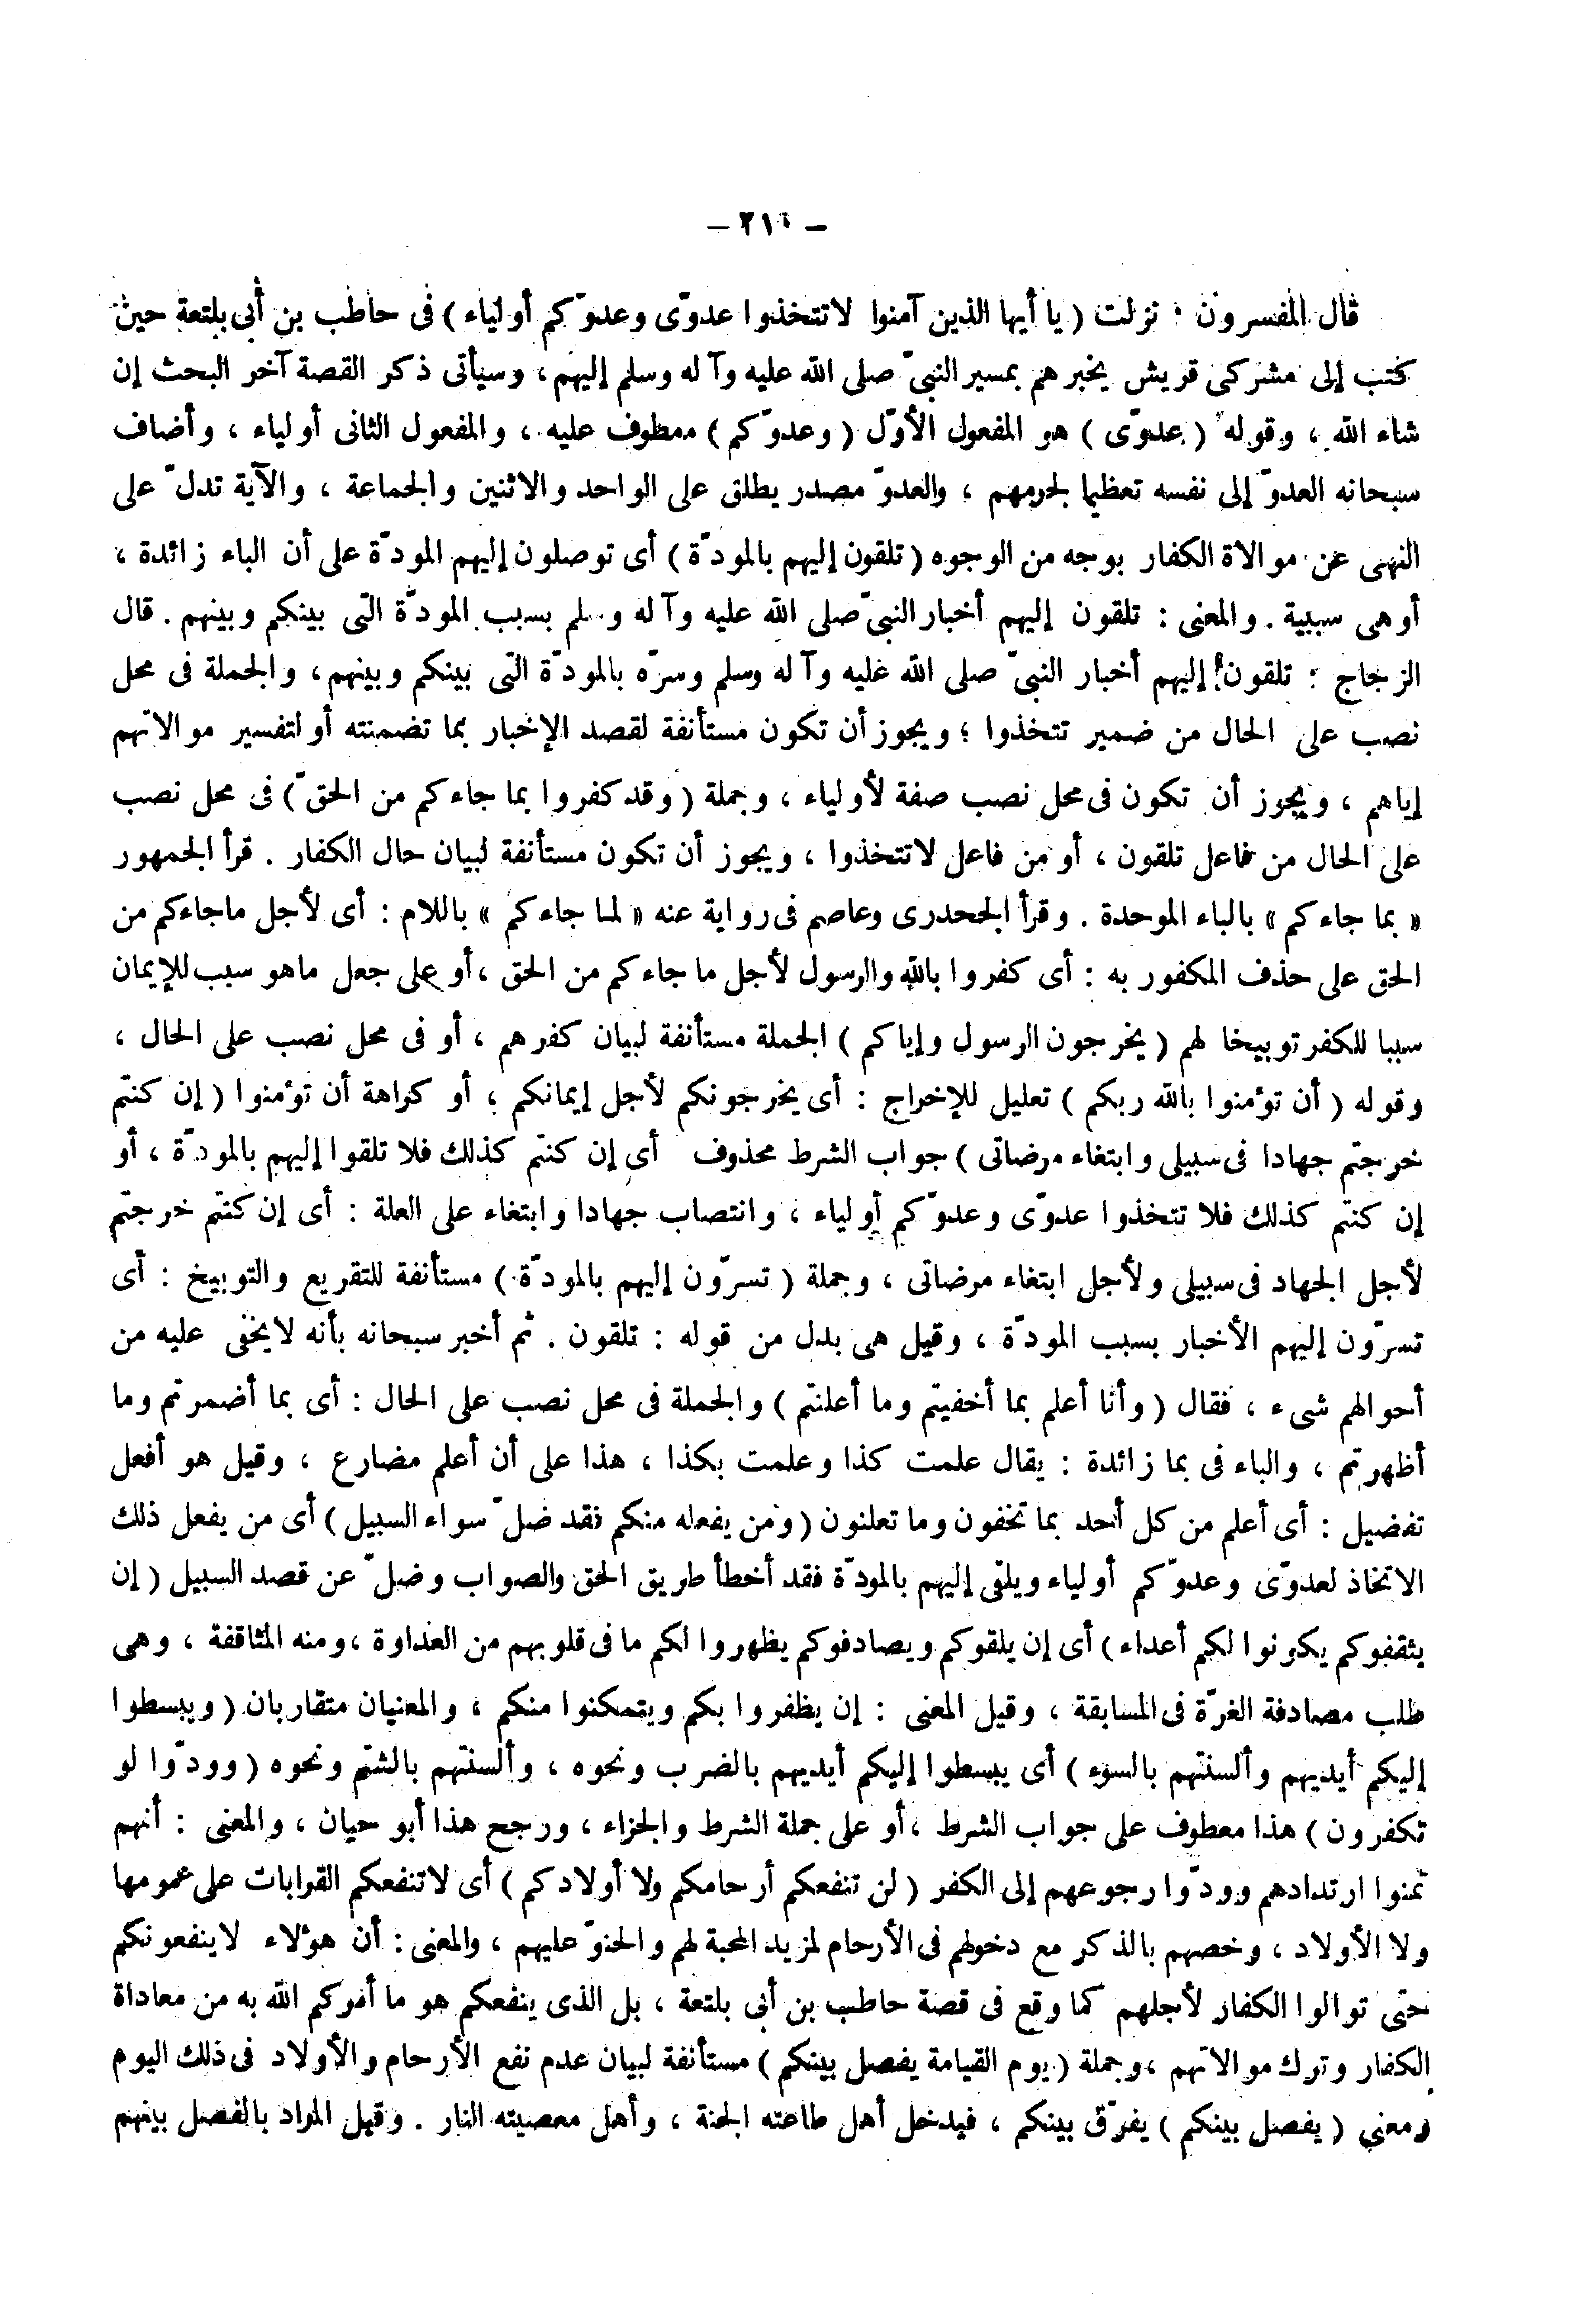 — ٢١٠ —
قال المفسرون : نزلت ( يا أيها الذين آمنوا لاتتخذوا عدوّى وعدوّكم أولياء ) فى حاطب بن أبى بلتعة حين
كتب إلى مشركى قريش يخبرهم بمسير النبىّ صلى الله عليه وآله وسلم إليهم ، وسيأتى ذكر القصة آخر البحث إن
شاء الله ، وقوله ( عدوّى ) هو المفعول الأوّل ( وعدوّكم ) معطوف عليه ، والمفعول الثانى أولياء ، وأضاف
سبحانه العدوّ إلى نفسه تعظيما لجرمهم ، والعدوّ مصدر يطلق على الواحد والاثنين والجماعة ، والآية تدلّ على
النهى عن موالاة الكفار بوجه من الوجوه ( تلقون إليهم بالمودّة ) أى توصلون إليهم المودّة على أن الباء زائدة ،
أوهى سببية . والمعنى : تلقون إليهم أخبار النبىّ صلى الله عليه وآله وسلم بسبب المودّة التى بينكم وبينهم . قال
الزجاج : تلقون إليهم أخبار النبىّ صلى الله عليه وآله وسلم وسرّه بالمودّة التى بينكم وبينهم ، والجملة فى محل
نصب على الحال من ضمير تتخذوا ؛ ويجوز أن تكون مستأنفة لقصد الإخبار بما تضمنته أو لتفسير موالاتهم
إياهم ، ويجوز أن تكون فى محل نصب صفة لأولياء ، وجملة ( وقد كفروا بما جاءكم من الحقّ ) فى محل نصب
على الحال من فاعل تلقون ، أو من فاعل لاتتخذوا ، ويجوز أن تكون مستأنفة لبيان حال الكفار . قرأ الجمهور
« بما جاءكم » بالباء الموحدة . وقرأ الجحدرى وعاصم فى رواية عنه « لما جاءكم » باللام : أى لأجل ماجاءكم من
الحق على حذف المكفور به : أى كفروا بالله والرسول لأجل ما جاءكم من الحق ، أو على جعل ماهو سبب للإيمان
سببا للكفر توبيخا لهم ( يخرجون الرسول وإياكم ) الجملة مستأنفة لبيان كفرهم ، أو فى محل نصب على الحال ،
وقوله ( أن تؤمنوا بالله ربكم ) تعليل للإخراج : أى يخرجونكم لأجل إيمانكم ، أو كراهة أن تؤمنوا ( إن كنتم
خرجتم جهادا فى سبيلى وابتغاء مرضاتى ) جواب الشرط محذوف أى إن كنتم كذلك فلا تلقوا إليهم بالمودّة ، أو
إن كنتم كذلك فلا تتخذوا عدوّى وعدوّكم أولياء ، وانتصاب جهادا وابتغاء على العلة : أى إن كنتم خرجتم
لأجل الجهاد فى سبيلى ولأجل ابتغاء مرضاتى ، وجملة ( تسرّون إليهم بالمودّة ) مستأنفة للتقريع والتوبيخ : أى
تسرّون إليهم الأخبار بسبب المودّة ، وقيل هى بدل من قوله : تلقون . ثم أخبر سبحانه بأنه لايخفى عليه من
أحوالهم شىء ، فقال ( وأنا أعلم بما أخفيتم وما أعلنتم ) والجملة فى محل نصب على الحال : أى بما أضمرتم وما
أظهرتم ، والباء فى بما زائدة : يقال علمت كذا وعلمت بكذا ، هذا على أن أعلم مضارع ، وقيل هو أفعل
تفضيل : أى أعلم من كل أحد بما تخفون وما تعلنون ( ومن يفعله منكم فقد ضلّ سواء السبيل ) أى من يفعل ذلك
الاتخاذ لعدوّى وعدوّكم أولياء ويلقى إليهم بالمودّة فقد أخطأ طريق الحق والصواب وضلّ عن قصد السبيل ( إن
يثقفوكم يكونوا لكم أعداء ) أى إن يلقوكم ويصادفوكم يظهروا لكم ما فى قلوبهم من العداوة ، ومنه المثاقفة ، وهى
طلب مصادفة الغرّة فى المسابقة ، وقيل المعنى : إن يظفروا بكم ويتمكنوا منكم ، والمعنيان متقاربان ( ويبسطوا
إليكم أيديهم وألسنتهم بالسوء ) أى يبسطوا إليكم أيديهم بالضرب ونحوه ، وألسنتهم بالشتم ونحوه ( وودّوا لو
تكفرون ) هذا معطوف على جواب الشرط ، أو على جملة الشرط والجزاء ، ورجح هذا أبو حيان ، والمعنى : أنهم
تمنوا ارتدادهم وودّوا رجوعهم إلى الكفر ( لن تنفعكم أرحامكم ولا أولادكم ) أى لاتنفعكم القرابات على عمومها
ولا الأولاد ، وخصهم بالذكر مع دخولهم فى الأرحام لمزيد المحبة لهم والحنوّ عليهم ، والمعنى : أن هؤلاء لاينفعونكم
حتى توالوا الكفار لأجلهم كما وقع فى قصة حاطب بن أبى بلتعة ، بل الذى ينفعكم هو ما أمركم الله به من معاداة
الكفار وترك موالاتهم ، وجملة ( يوم القيامة يفصل بينكم ) مستأنفة لبيان عدم نفع الأرحام والأولاد فى ذلك اليوم
ومعنى ( يفصل بينكم ) يفرّق بينكم ، فيدخل أهل طاعته الجنة ، وأهل معصيته النار . وقيل المراد بالفصل بينهم